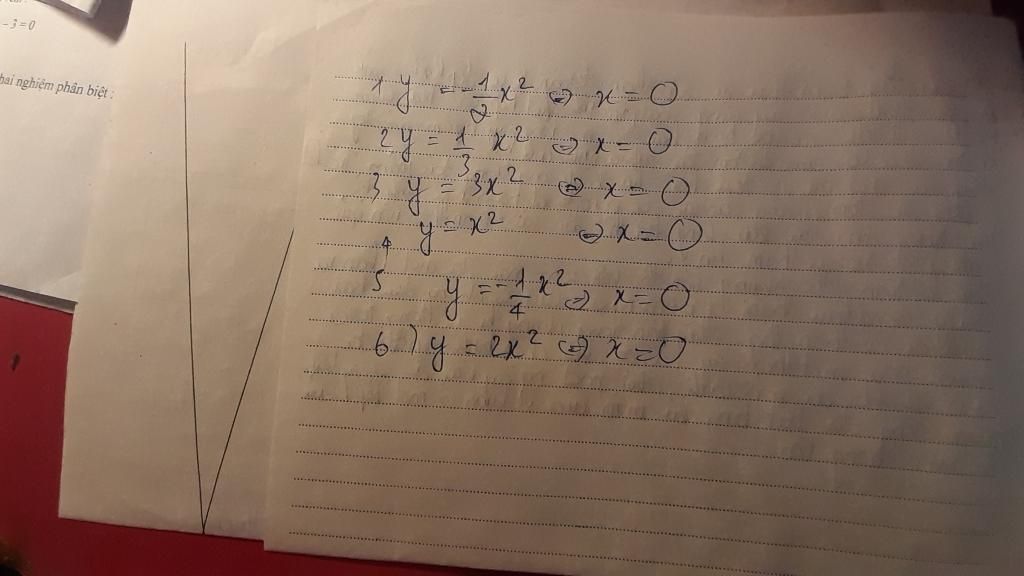 - 3 = 0
hai nghiệm phân biệt :
1 y = -1/2 x² ⇔ x = 0
2 y = 1/3 x² ⇔ x = 0
3 y = 3x² ⇔ x = 0
4 y = x² ⇔ x = 0
5 y = -1/4 x² ⇔ x = 0
6 ) y = 2x² ⇔ x = 0